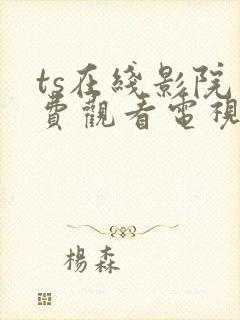 ts在綫影院
費觀看電視
楊森